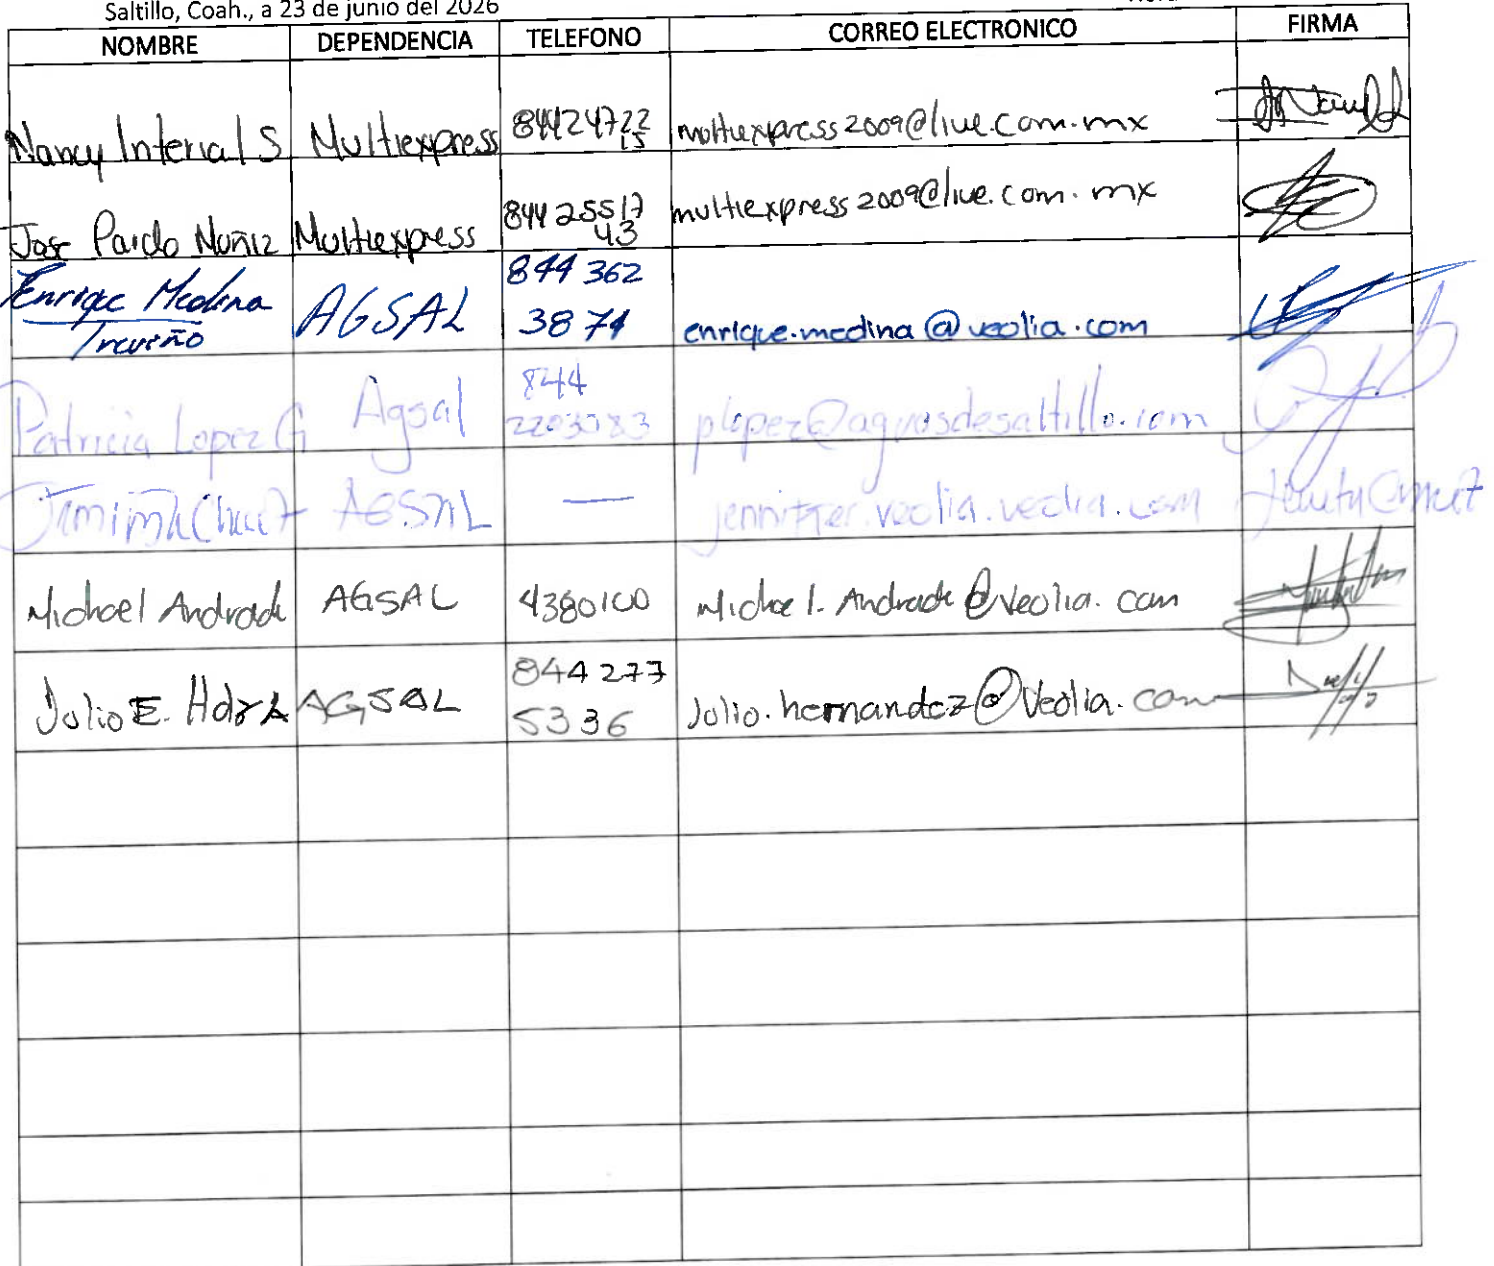 Saltillo, Coah., a 23 de junio del 2026
NOMBRE DEPENDENCIA TELEFONO CORREO ELECTRONICO FIRMA
Nancy Interial S Multiexpress 8442472215 multiexpress2009@live.com.mx
Jose Pardo Nuñez Multiexpress 844 255 17 43 multiexpress2009@live.com.mx
Enrique Medina Treviño AGSAL 844 362 3874 enrique.medina@veolia.com
Patricia Lopez G Agsal 844 plopez@aguasdesaltillo.com
AGSAL — veolia.veolia.com
Michael Andrade AGSAL 4380100 Michael.Andrade@veolia.com
Julio E. Hdz AGSAL 844 277 5336 Julio.hernandez@Veolia.com